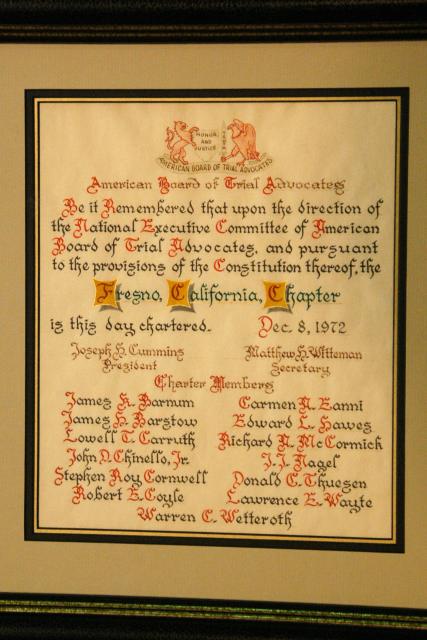 HONOR
AND
JUSTICE
AMERICAN BOARD OF TRIAL ADVOCATES
American Board of Trial Advocates
Be it Remembered that upon the direction of
the National Executive Committee of American
Board of Trial Advocates, and pursuant
to the provisions of the Constitution thereof, the
Fresno, California, Chapter
is this day chartered. Dec. 8, 1972
Joseph H. Cummins Matthew H. Witteman
President Secretary
Charter Members
James K. Barnum Carmen A. Eanni
James H. Barstow Edward L. Hawes
Lowell T. Carruth Richard A. McCormick
John D. Chinello, Jr. J. J. Nagel
Stephen Roy Cornwell Donald C. Thuesen
Robert E. Coyle Lawrence E. Wayte
Warren C. Wetteroth